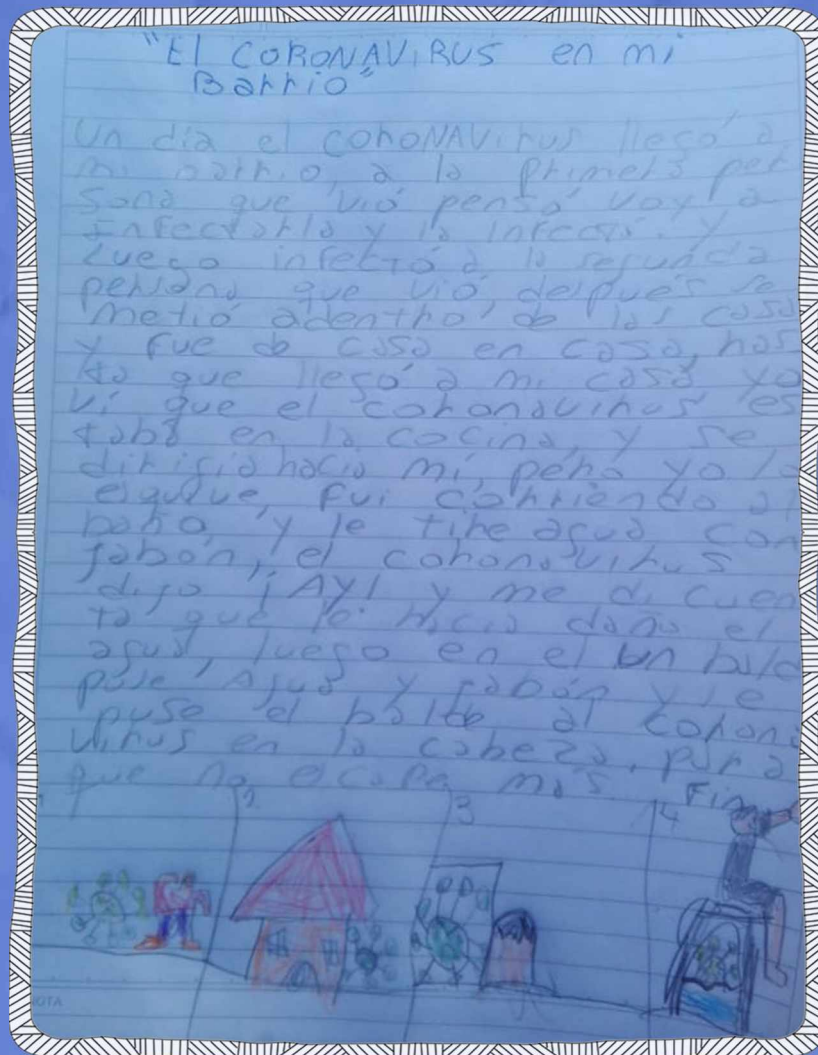 "El CORONAVIRUS en mi
Barrio"
Un día el coroNAVirus llegó a
mi barrio, a la primera per
sona que vió pensó voy a
Infectarla y la infectó. y
Luego infectó a la segunda
persona que vió, después se
metió adentro de las casa
y fue de casa en casa, has
ta que llegó a mi casa yo
vi que el coronavirus es
taba en la cocina, y se
dirigió hacia mí, pero yo lo
esquive, fui corriendo al
baño, y le tire agua con
jabón, el coronavirus
dijo ¡AY! y me di cuen
ta que le hacia daño el
agua, luego en el un bald
puse agua y jabón y le
puse el balde al corona
virus en la cabeza, para
que no escape más Fin
1 2 3 4
NOTA